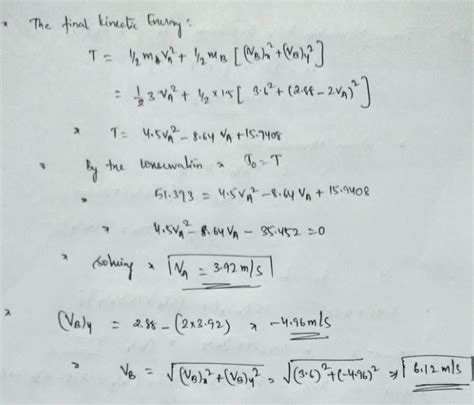 * The final kinetic Energy:
T = 1/2 mA VA² + 1/2 mB [ (VB)x² + (VB)y² ]
= 1/2 3 VA² + 1/2 × 1.5 [ 3.6² + (2.88 - 2VA)² ]
T = 4.5VA² - 8.64 VA + 15.9408
By the conservation T0 = T
51.393 = 4.5VA² - 8.64 VA + 15.9408
4.5VA² - 8.64 VA - 35.452 = 0
solving VA = 3.92 m/s
(VB)y = 2.88 - (2×3.92) -4.96 m/s
VB = √(VB)x² + (VB)y² = √(3.6)² + (-4.96)² ⇒ 6.12 m/s